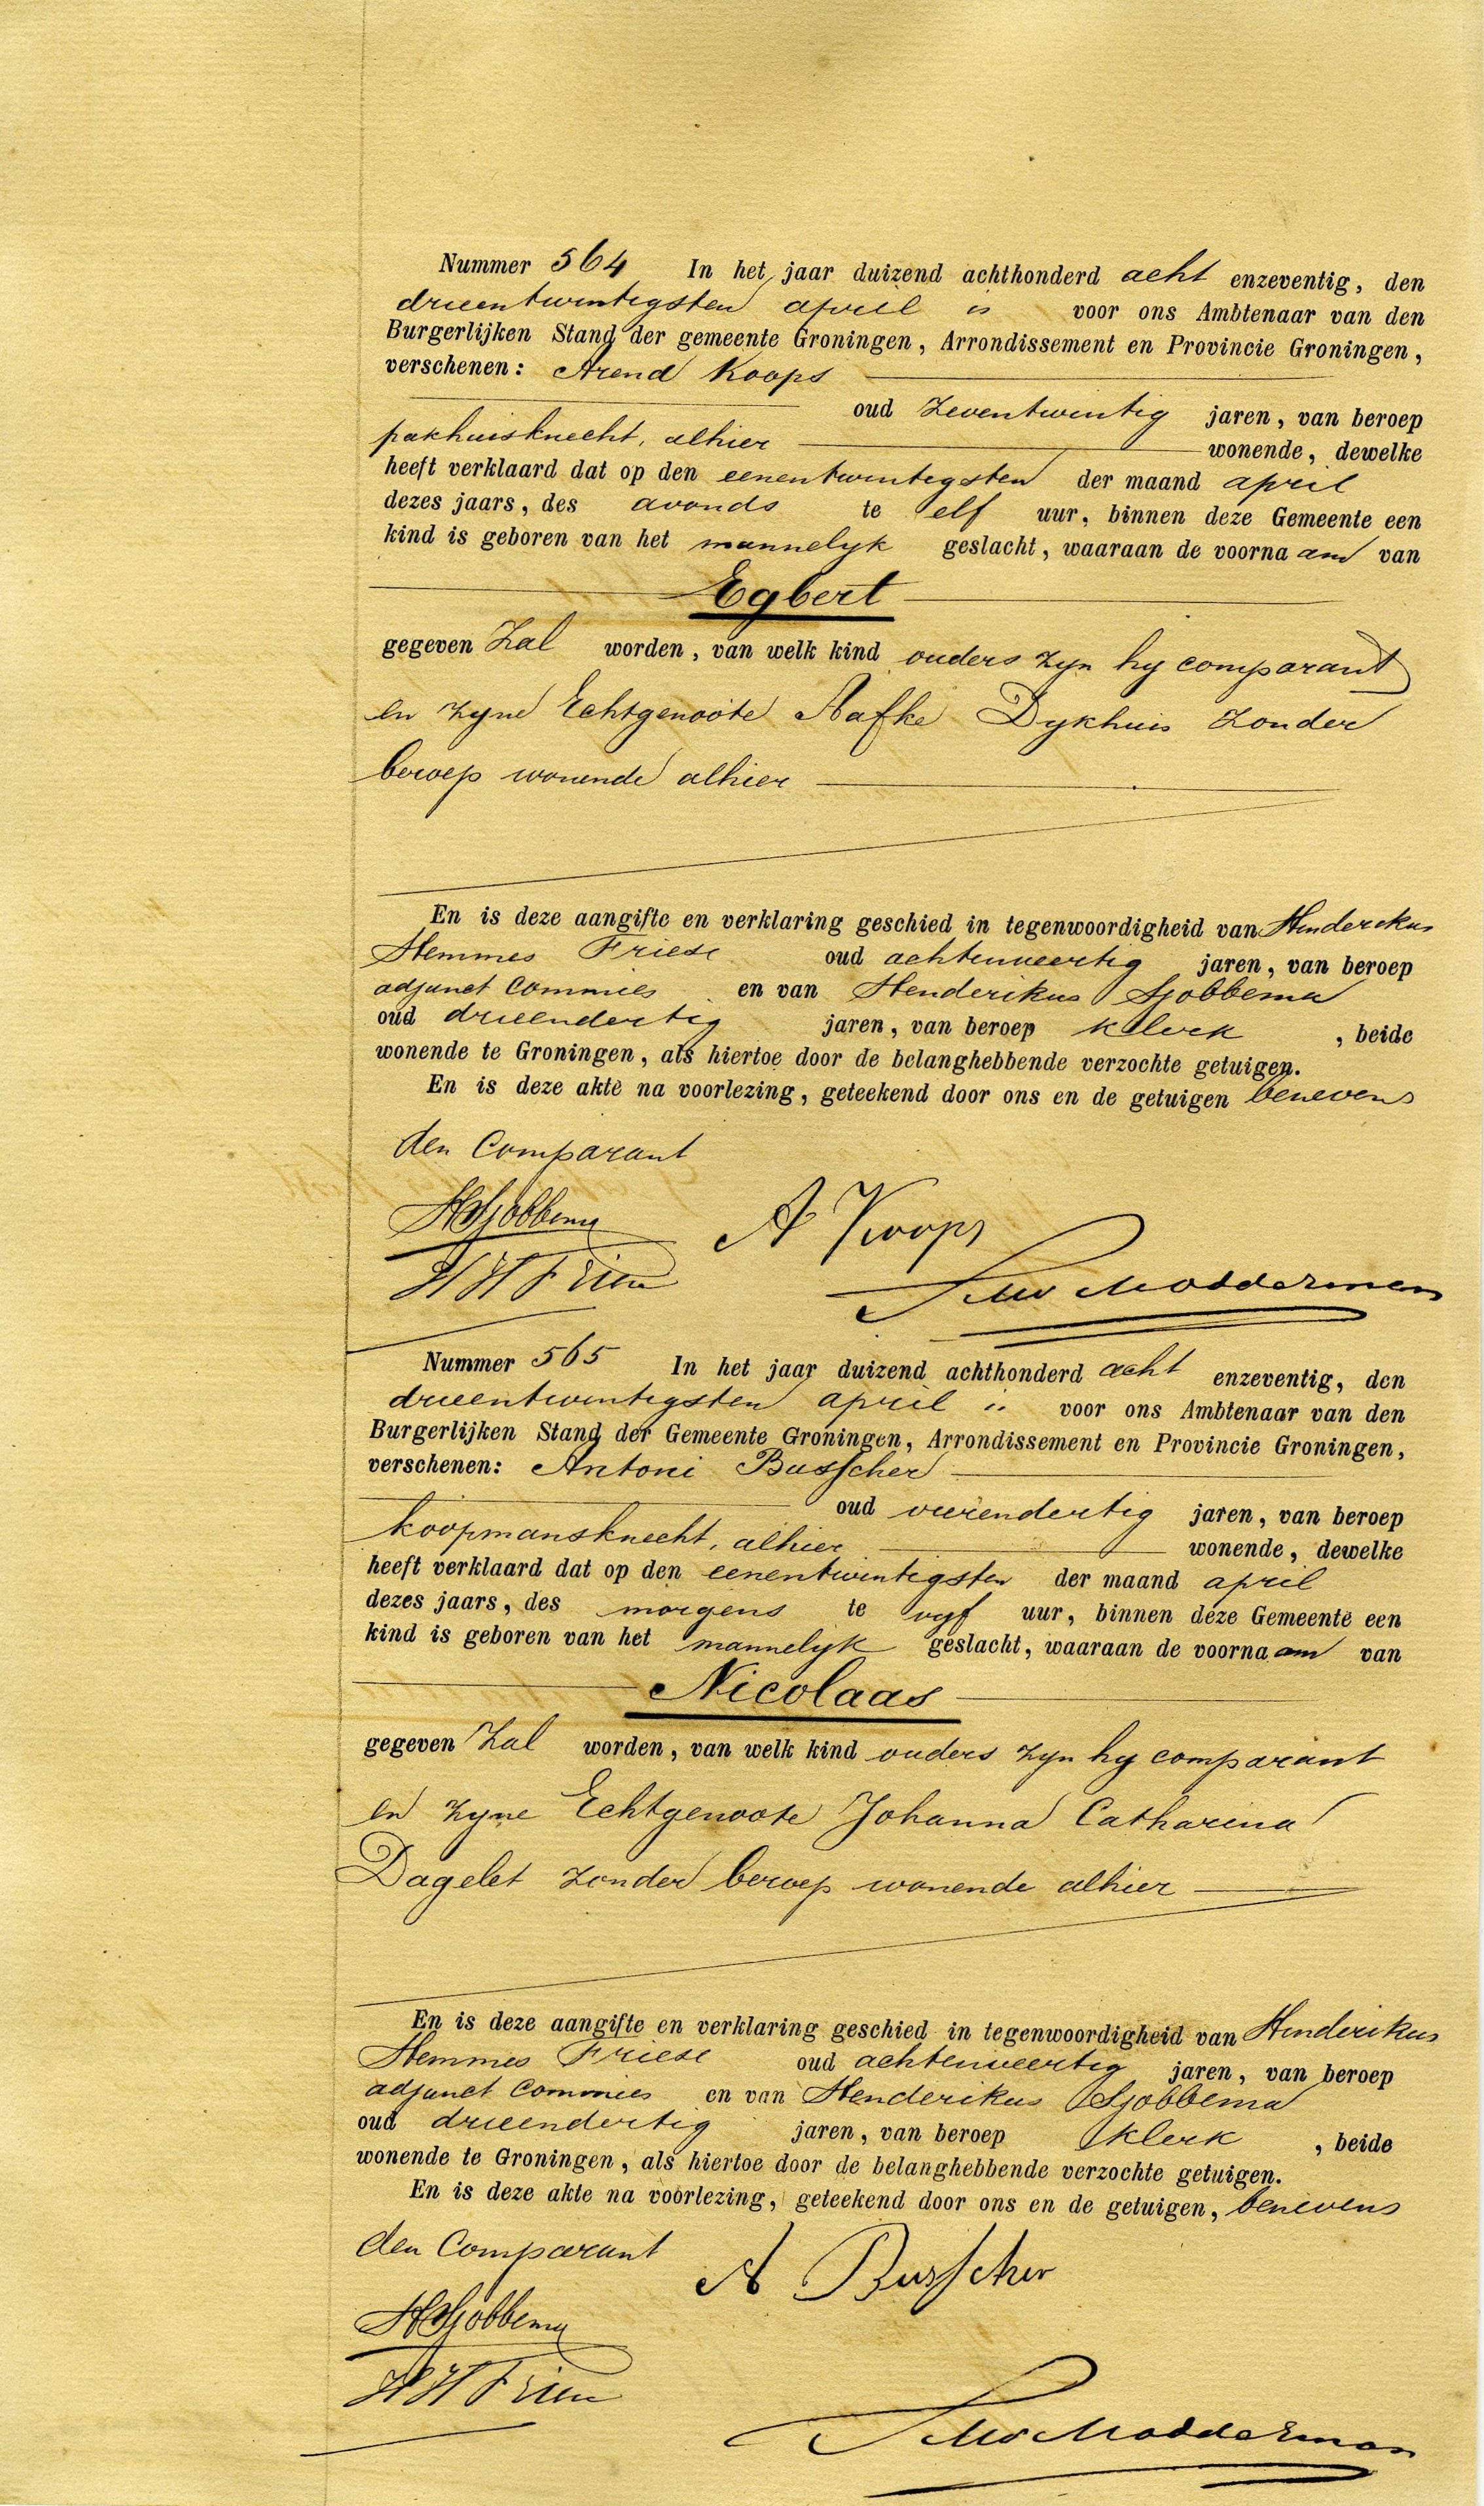 Nummer 564 In het jaar duizend achthonderd acht enzeventig, den
drieentwintigsten april is voor ons Ambtenaar van den
Burgerlijken Stand der gemeente Groningen, Arrondissement en Provincie Groningen,
verschenen: Arend Koops
oud zeventwintig jaren, van beroep
pakhuisknecht, alhier wonende, dewelke
heeft verklaard dat op den eenentwintigsten der maand april
dezes jaars, des avonds te elf uur, binnen deze Gemeente een
kind is geboren van het mannelyk geslacht, waaraan de voornaam van
Egbert
gegeven zal worden, van welk kind ouders zyn hy comparant
en zyne Echtgenoote Aafke Dykhuis zonder
beroep wonende alhier
En is deze aangifte en verklaring geschied in tegenwoordigheid van Henderikus
Hemmes Friese oud achtenveertig jaren, van beroep
adjunct Commies en van Henderikus Sjobbema
oud drieendertig jaren, van beroep klerk, beide
wonende te Groningen, als hiertoe door de belanghebbende verzochte getuigen.
En is deze akte na voorlezing, geteekend door ons en de getuigen benevens
den Comparant
HSjobbema A Koops
HH Friese Modderman
Nummer 565 In het jaar duizend achthonderd acht enzeventig, den
drieentwintigsten april is voor ons Ambtenaar van den
Burgerlijken Stand der Gemeente Groningen, Arrondissement en Provincie Groningen,
verschenen: Antoni Busscher
oud vierendertig jaren, van beroep
koopmansknecht, alhier wonende, dewelke
heeft verklaard dat op den eenentwintigsten der maand april
dezes jaars, des morgens te vyf uur, binnen deze Gemeente een
kind is geboren van het mannelyk geslacht, waaraan de voornaam van
Nicolaas
gegeven zal worden, van welk kind ouders zyn hy comparant
en zyne Echtgenoote Johanna Catharina
Dagelet zonder beroep wonende alhier
En is deze aangifte en verklaring geschied in tegenwoordigheid van Henderikus
Hemmes Friese oud achtenveertig jaren, van beroep
adjunct Commies en van Henderikus Sjobbema
oud drieendertig jaren, van beroep klerk, beide
wonende te Groningen, als hiertoe door de belanghebbende verzochte getuigen.
En is deze akte na voorlezing, geteekend door ons en de getuigen, benevens
den Comparant A Busscher
HSjobbema
HH Friese
Modderman